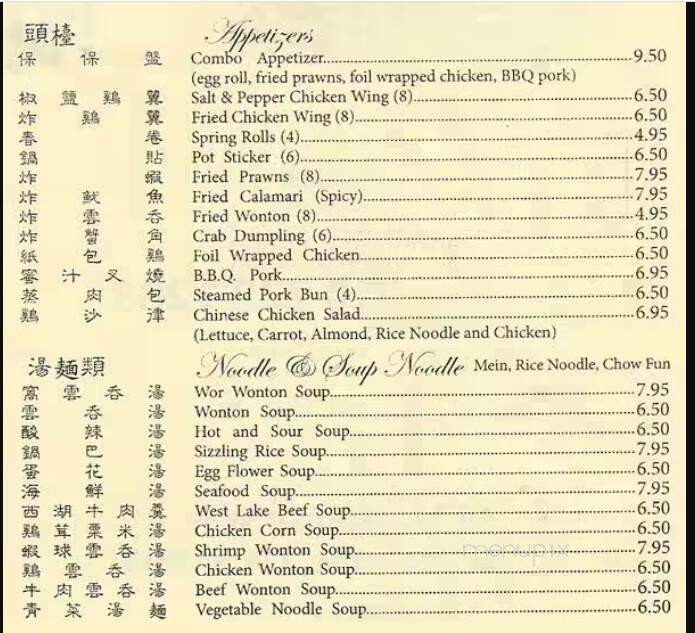 頭檯 Appetizers
保保盤 Combo Appetizer 9.50
(egg roll, fried prawns, foil wrapped chicken, BBQ pork)
椒鹽鷄翼 Salt & Pepper Chicken Wing (8) 6.50
炸鷄翼 Fried Chicken Wing (8) 6.50
春卷 Spring Rolls (4) 4.95
鍋貼 Pot Sticker (6) 6.50
炸蝦 Fried Prawns (8) 7.95
炸魷魚 Fried Calamari (Spicy) 7.95
炸雲吞 Fried Wonton (8) 4.95
炸蟹角 Crab Dumpling (6) 6.50
紙包鷄 Foil Wrapped Chicken 6.50
蜜汁叉燒 B.B.Q. Pork 6.95
蒸肉包 Steamed Pork Bun (4) 6.50
鷄沙律 Chinese Chicken Salad 6.95
(Lettuce, Carrot, Almond, Rice Noodle and Chicken)
湯麵類 Noodle & Soup Noodle Mein, Rice Noodle, Chow Fun
窩雲吞湯 Wor Wonton Soup 7.95
雲吞湯 Wonton Soup 6.50
酸辣湯 Hot and Sour Soup 6.50
鍋巴湯 Sizzling Rice Soup 7.95
蛋花湯 Egg Flower Soup 6.50
海鮮湯 Seafood Soup 7.95
西湖牛肉羹 West Lake Beef Soup 6.50
鷄茸粟米湯 Chicken Corn Soup 6.50
蝦球雲吞湯 Shrimp Wonton Soup 7.95
鷄雲吞湯 Chicken Wonton Soup 6.50
牛肉雲吞湯 Beef Wonton Soup 6.50
青菜湯麵 Vegetable Noodle Soup 6.50
menupix